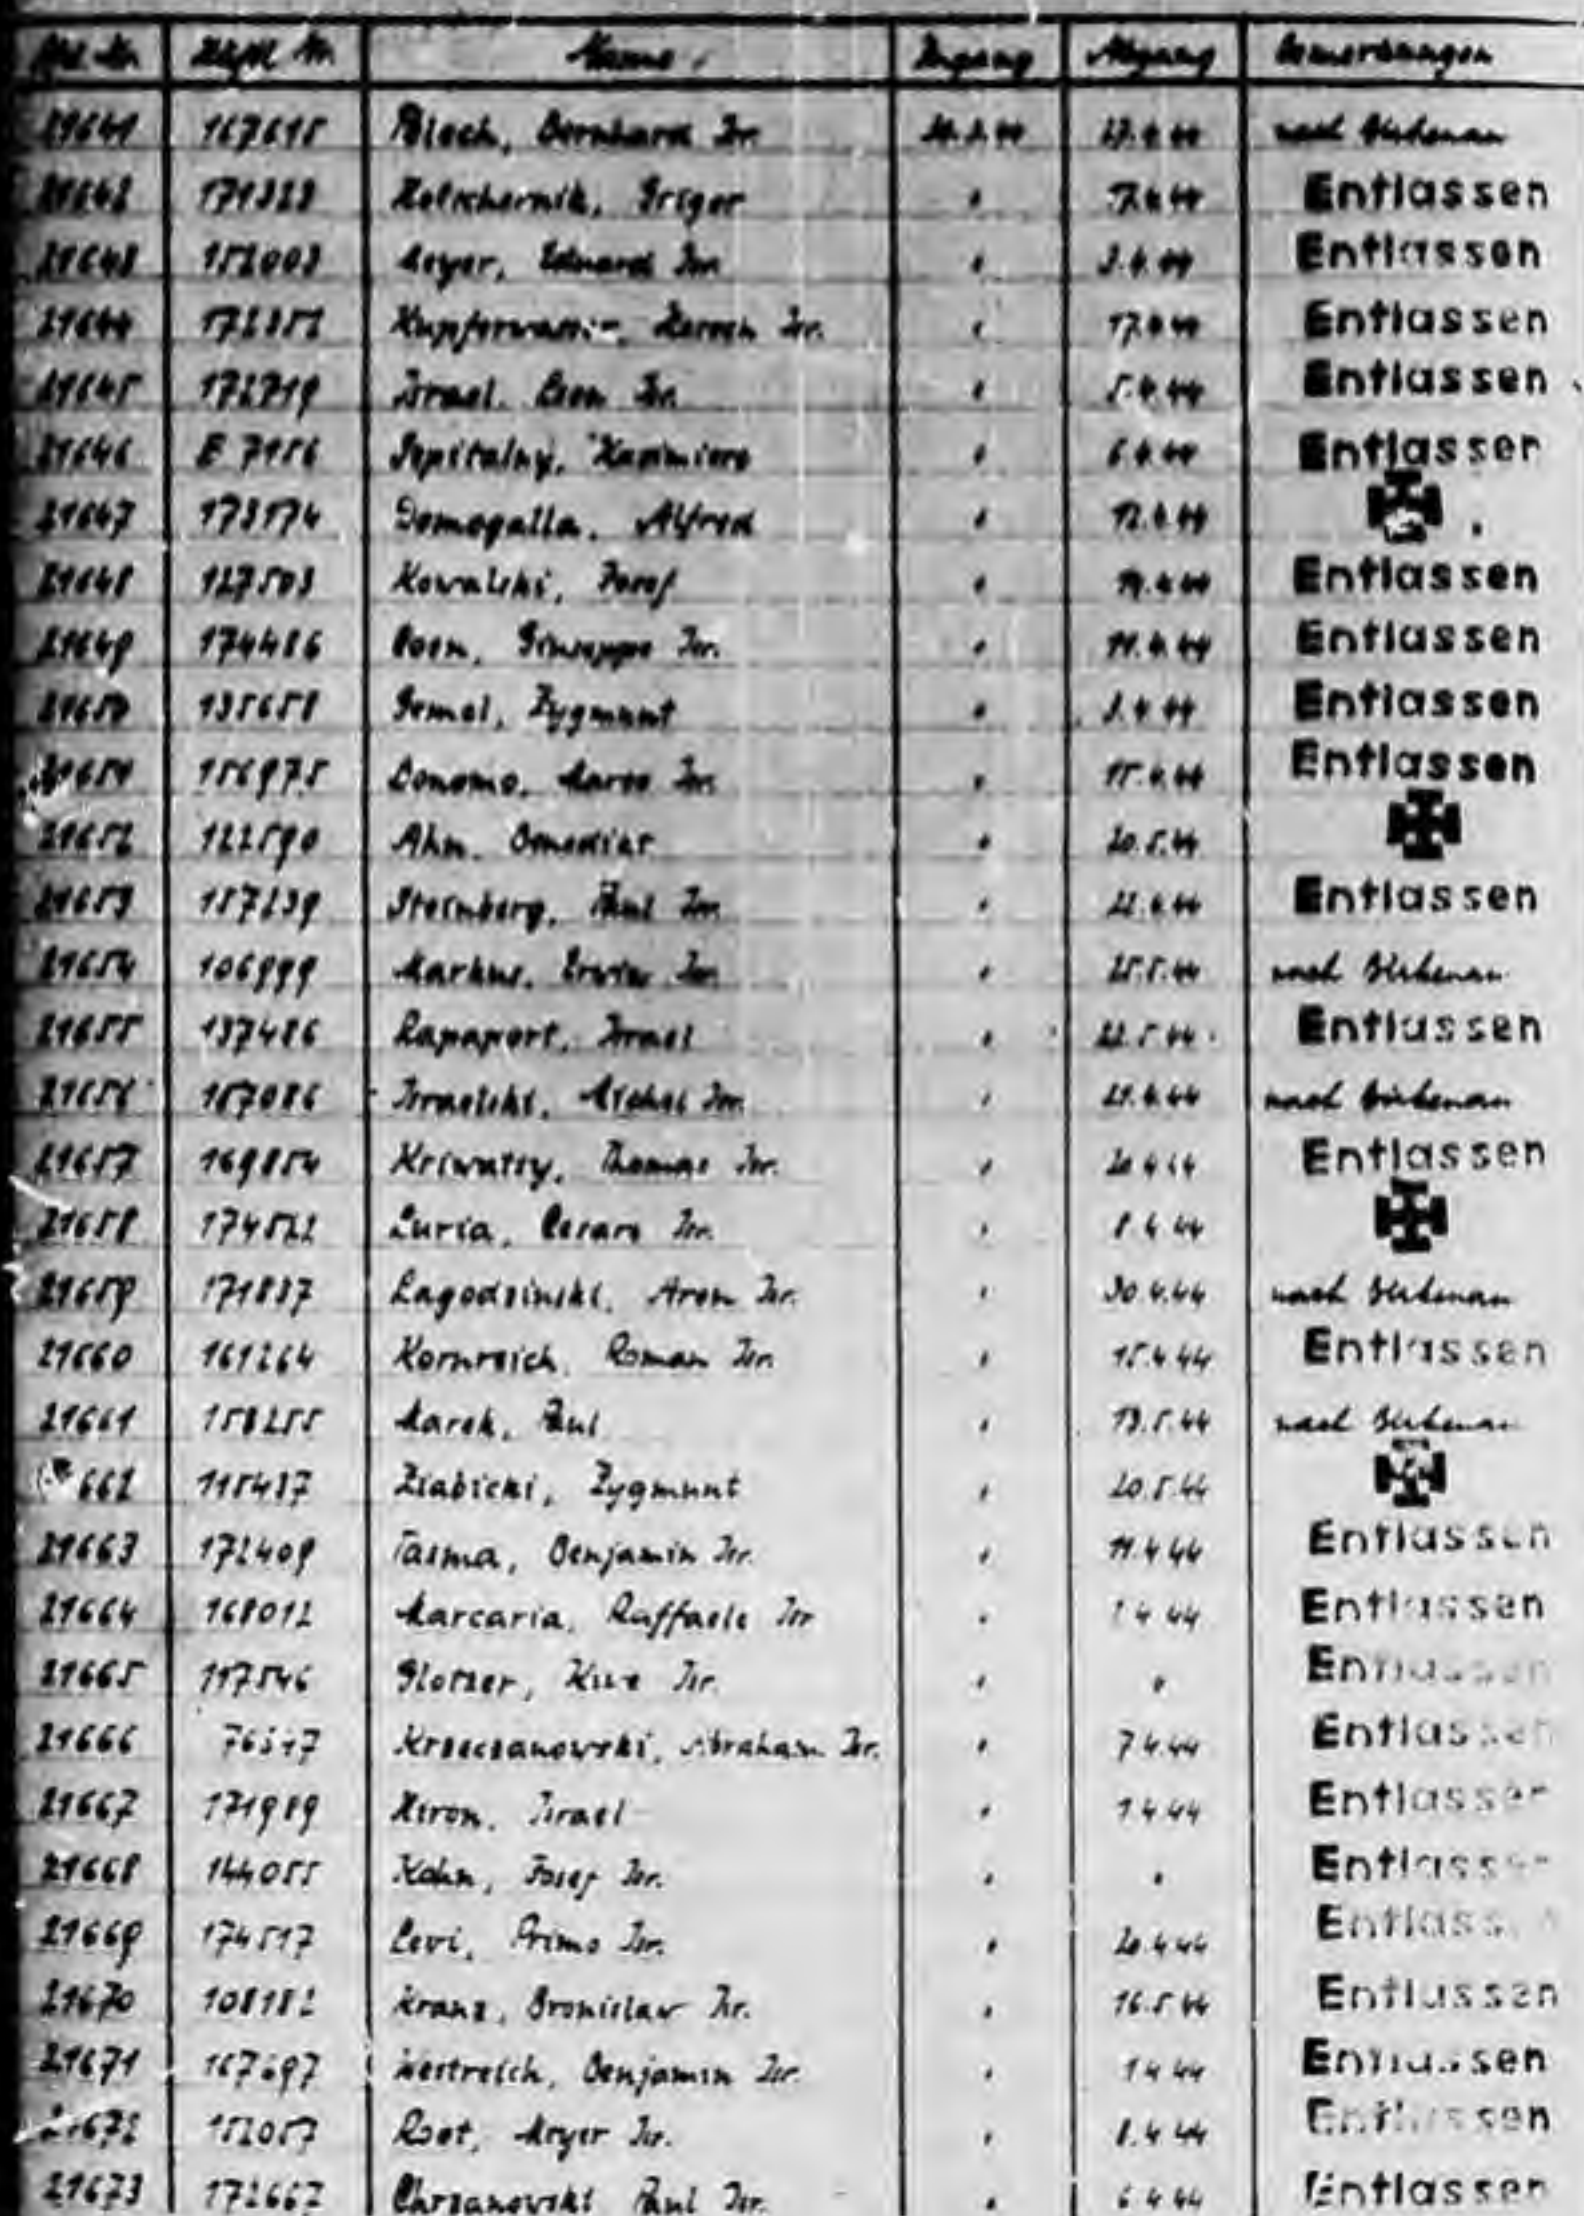 Lfd. Nr. Häftl. Nr. Name Zugang Abgang Bemerkungen
21641 167615 Bloch, Bernhard Isr. 27.4.44 nach Birkenau
21642 171323 Kotschernik, Grigor " 17.4.44 Entlassen
21643 152003 Meyer, Eduard Isr. " 3.4.44 Entlassen
21644 172352 Isr. " 17.4.44 Entlassen
21645 172719 Israel, Leon Isr. " 5.4.44 Entlassen
21646 E 7156 Szpitalny, Kasimierz " 6.4.44 Entlassen
21647 173174 Domogalla, Alfred " 12.4.44
21648 127503 Kowalski, Josef " 19.4.44 Entlassen
21649 174486 Coen, Giuseppe Isr. " 11.4.44 Entlassen
21650 135658 Zygmunt " 3.4.44 Entlassen
21651 156975 Bonomo, Marco Isr. " 15.4.44 Entlassen
21652 122590 " 20.5.44
21653 157239 Steinberg, Paul Isr. " 22.4.44 Entlassen
21654 106999 Markus, Erwin Isr. " 25.5.44 nach Birkenau
21655 137486 Rapaport, Israel " 22.5.44 Entlassen
21656 167086 Israelski, Michel Isr. " 21.4.44 nach Birkenau
21657 169854 Kriwatsy, Thomas Isr. " 20.4.44 Entlassen
21658 174522 Luria, Cesare Isr. " 8.4.44
21659 171837 Lagodzinski, Aron Isr. " 30.4.44 nach Birkenau
21660 161264 Kornreich, Roman Isr. " 15.4.44 Entlassen
21661 158255 Marek, Paul " 13.5.44 nach Birkenau
662 115437 Zlabicki, Zygmunt " 20.5.44
21663 172409 Tasma, Benjamin Isr. " 11.4.44 Entlassen
21664 168012 Marcaria, Raffaele Isr " 1.4.44 Entlassen
21665 117546 Glotzer, Isr. " " Entlassen
21666 Krzeczanowski, Abraham Isr. " 7.4.44 Entlassen
21667 171989 Israel " 1.4.44 Entlassen
21668 144055 Kahn, Josef Isr. " " Entlassen
21669 174517 Levi, Primo Isr. " 20.4.44 Entlassen
21670 108182 Kranz, Bronislaw Isr. " 16.5.44 Entlassen
21671 167697 Westreich, Benjamin Isr. " 1.4.44 Entlassen
21672 152057 Root, Meyer Isr. " 8.4.44 Entlassen
21673 172667 Chrzanowski Paul Isr. " 6.4.44 Entlassen